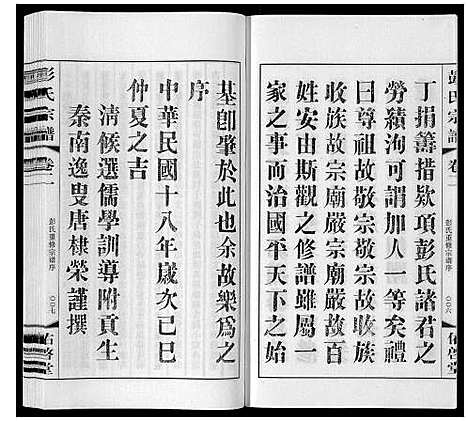 彭氏宗譜
卷一
丁捐籌措欵項彭氏諸君之
勞績洵可謂加人一等矣禮
曰尊祖故敬宗敬宗故收族
收族故宗廟嚴宗廟嚴故百
姓安由斯觀之修譜雖屬一
家之事而治國平天下之始
彭氏重修宗譜序
〇〇六
佑啓堂
基卽肇於此也余故樂爲之
序
中華民國十八年歲次己巳
仲夏之吉
淸候選儒學訓導附貢生
秦南逸叟唐棣榮謹撰
彭氏宗譜
卷一
彭氏重修宗譜序
〇〇七
佑啓堂